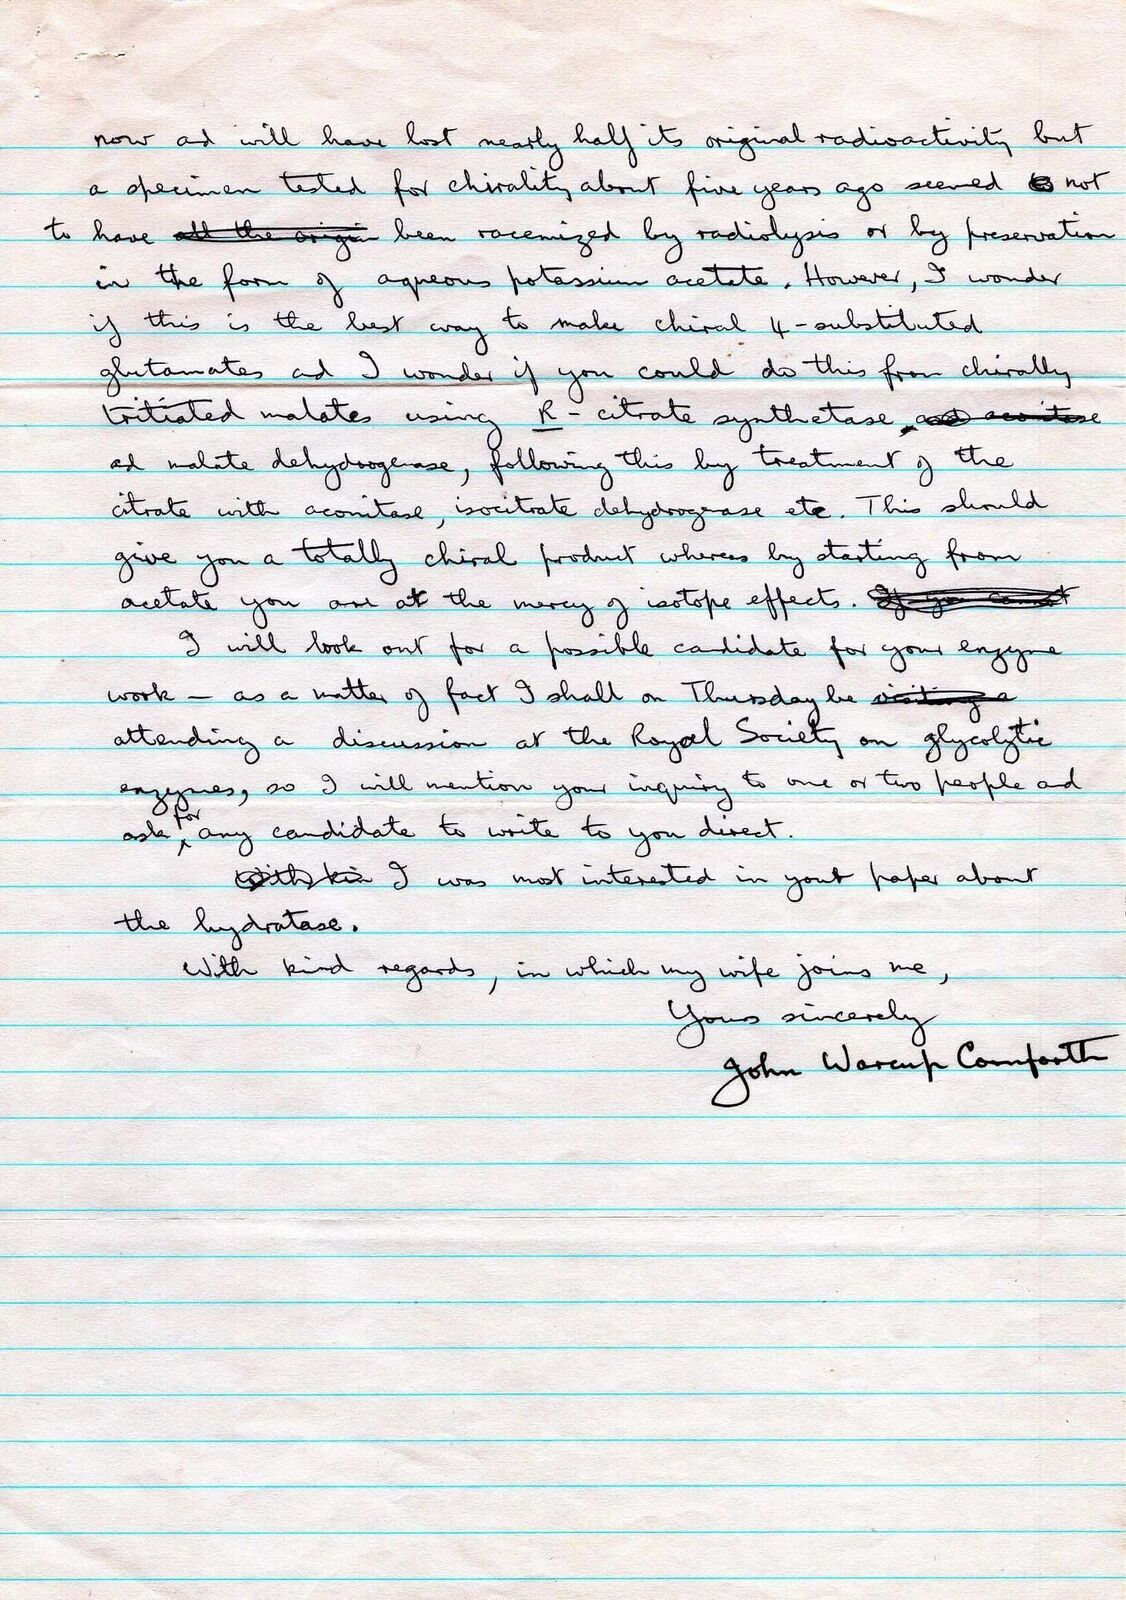 now ad will have lost nearly half its original radioactivity but
a specimen tested for chirality about five years ago seemed not
to have all the origin been racemized by radiolysis or by preservation
in the form of aqueous potassium acetate. However, I wonder
if this is the best way to make chiral 4-substituted
glutamates ad I wonder if you could do this from chirally
tritiated malates using R-citrate synthetase, and aconitase
ad malate dehydrogenase, following this by treatment of the
citrate with aconitase, isocitrate dehydrogenase etc. This should
give you a totally chiral product whereas by starting from
acetate you are at the mercy of isotope effects. If you cannot
I will look out for a possible candidate for your enzyme
work – as a matter of fact I shall on Thursday be visiting a
attending a discussion at the Royal Society on glycolytic
enzymes, so I will mention your inquiry to one or two people ad
ask for any candidate to write to you direct.
With kin I was most interested in your paper about
the hydratase.
With kind regards, in which my wife joins me,
Yours sincerely
John Warcup Cornforth